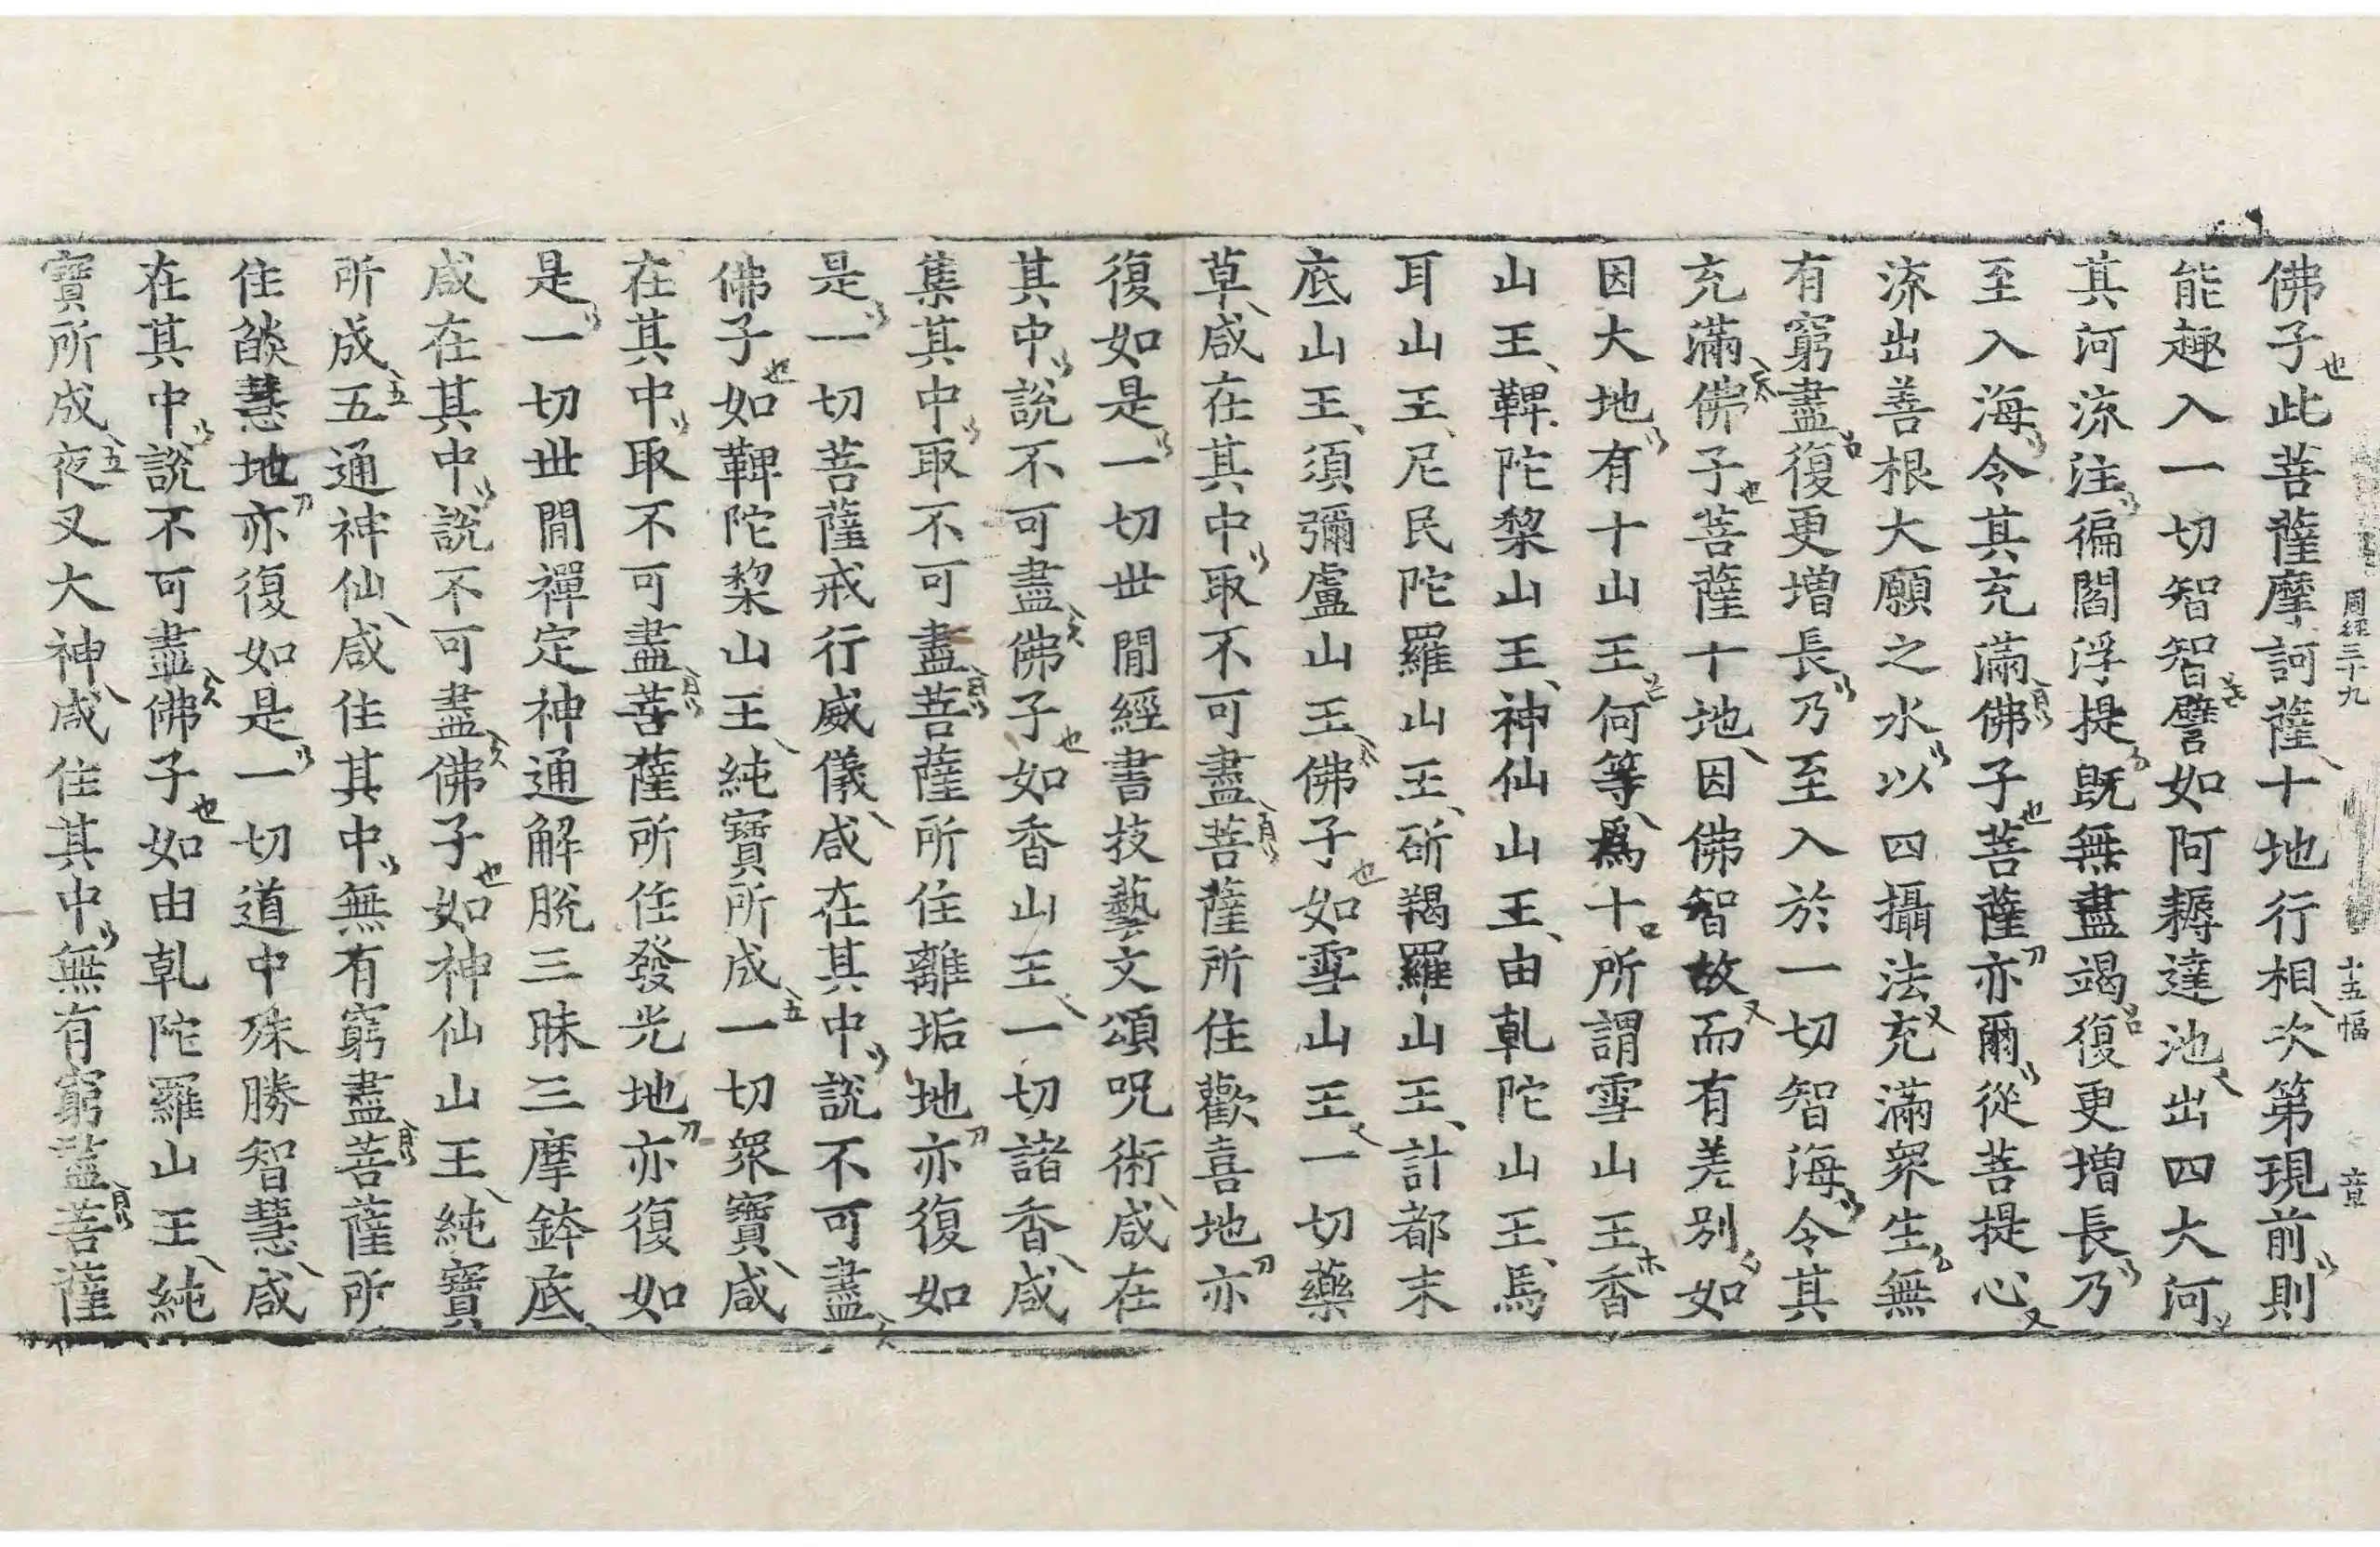 佛子此菩薩摩訶薩十地行相次第現前則
周經三十九 十五幅 章
能趣入一切智智譬如阿耨達池出四大河
其河流注徧閻浮提旣無盡竭復更增長乃
至入海令其充滿佛子菩薩亦爾從菩提心
流出善根大願之水以四攝法充滿衆生無
有窮盡復更增長乃至入於一切智海令其
充滿佛子菩薩十地因佛智故而有差別如
因大地有十山王何等爲十所謂雪山王香
山王鞞陀梨山王神仙山王由乹陀山王馬
耳山王尼民陀羅山王斫羯羅山王計都末
底山王須彌盧山王佛子如雪山王一切藥
草咸在其中取不可盡菩薩所住歡喜地亦
復如是一切世閒經書技藝文頌呪術咸在
其中說不可盡佛子如香山王一切諸香咸
集其中取不可盡菩薩所住離垢地亦復如
是一切菩薩戒行威儀咸在其中說不可盡
佛子如鞞陀梨山王純寶所成一切衆寶咸
在其中取不可盡菩薩所住發光地亦復如
是一切世閒禪定神通解脫三昧三摩鉢底
咸在其中說不可盡佛子如神仙山王純寶
所成五通神仙咸住其中無有窮盡菩薩所
住燄慧地亦復如是一切道中殊勝智慧咸
在其中說不可盡佛子如由乹陀羅山王純
寶所成夜叉大神咸住其中無有窮盡菩薩